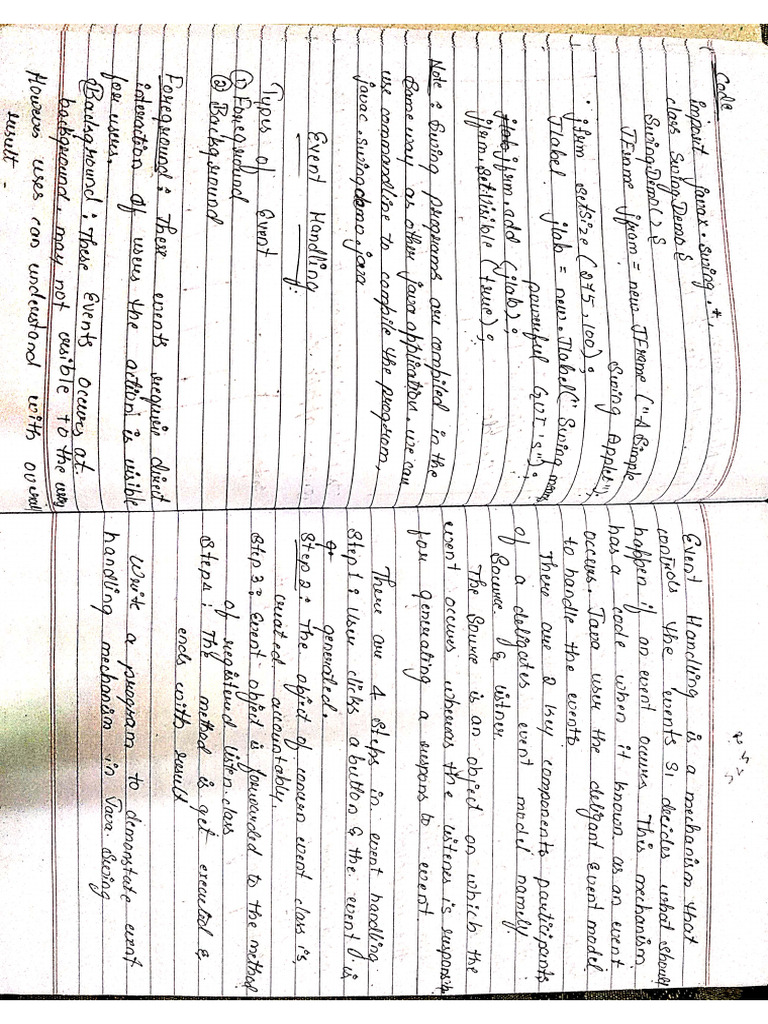 Code
import javax.swing.*;
class SwingDemo {
SwingDemo() {
JFrame jfram = new JFrame ("A Simple
Swing Applet");
jfrm setSize (275, 100);
Jlabel jlab = new.Jlabel("Swing means
powerful GUI's");
jfrm.add (jlab);
jfrm.setVisible (true);
Note: Swing programs are compiled in the
Same way as other java application. we can
use commandline to compile the program,
javac.swingdemo.java
Event Handling
Types of Event
① Foreground
② Background
Foreground: These events require direct
interaction of users the action is visible
for users.
Background: These Events occurs at
background, may not visible to the
However uses can understand with overall
result.
Event Handling is a mechanism that
controls the events & decides what should
happen if an event occurs This mechanism
has a code when it known as an event
occurs. Java user the deligant Event model
to handle the events
There are 2 key components participants
of a deligates event model namely
Source & listner.
The Sourse is an object on which the
event occurs whereas the listener is responsible
for generating a respons to event.
There are 4 Steps in event handling
Step 1: User clicks a button & the event is
generated.
Step 2: The object of concern event class is
created accountably.
Step 3: Event object is forwarded to the method
of registered listen.class
Step 4: The method is get executed &
ends with result
Write a program to demonstate event
handling mechanism in Java Swing